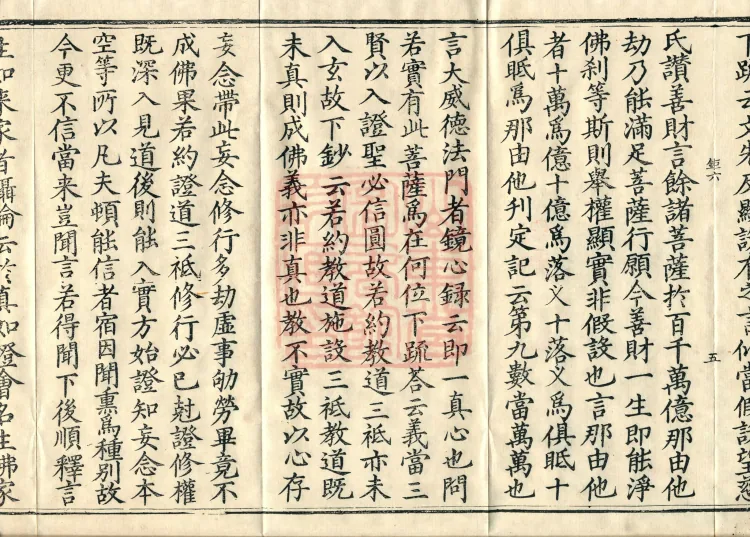 氏讃善財言餘諸菩薩扵百千萬億那由他
劫乃能滿足菩薩行願今善財一生即能淨
佛刹等斯則舉權顯實非假設也言那由他
者十萬爲億十億爲落义十落义爲俱胝十
俱胝爲那由他刋定記云第九數當萬萬也
鉅六
五
言大威德法門者鏡心録云即一真心也問
若實有此菩薩爲在何位下䟽荅云義當三
賢以入證聖必信圓故若約教道三祇亦未
入玄故下鈔云若約教道施設三祇教道既
未真則成佛義亦非真也教不實故以心存
妄念帶此妄念修行多劫虚事劬勞畢竟不
成佛果若約證道三祇修行必已尅證修權
既深入見道後則能入實方始證知妄念本
空等所以凡夫頓能信者宿因聞熏爲種别故
今更不信當来豈聞言若得聞下後順釋言
生如来家者攝論云扵真如證會名生佛家